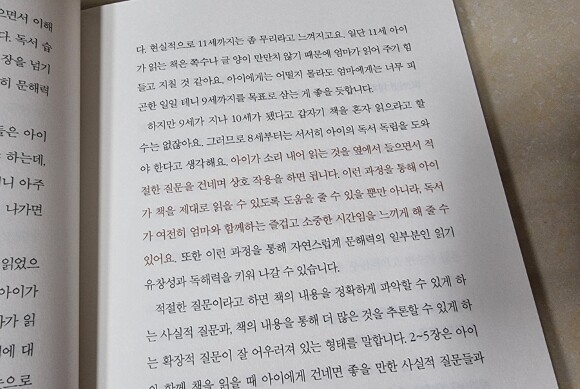 으면서 이해
다. 독서 습
장을 넘기
히 문해력
들은 아이
야 하는데,
니 아주
나가면
읽었으
아이가
가 읽
에 대
으로
다. 현실적으로 11세까지는 좀 무리라고 느껴지고요. 일단 11세 아이
가 읽는 책은 쪽수나 글 양이 만만치 않기 때문에 엄마가 읽어 주기 힘
들고 지칠 것 같아요. 아이에게는 어떨지 몰라도 엄마에게는 너무 피
곤한 일일 테니 9세까지를 목표로 삼는 게 좋을 듯합니다.
하지만 9세가 지나 10세가 됐다고 갑자기 책을 혼자 읽으라고 할
수는 없잖아요. 그러므로 8세부터는 서서히 아이의 독서 독립을 도와
야 한다고 생각해요. 아이가 소리 내어 읽는 것을 옆에서 들으면서 적
절한 질문을 건네며 상호 작용을 하면 됩니다. 이런 과정을 통해 아이
가 책을 제대로 읽을 수 있도록 도움을 줄 수 있을 뿐만 아니라, 독서
가 여전히 엄마와 함께하는 즐겁고 소중한 시간임을 느끼게 해 줄 수
있어요. 또한 이런 과정을 통해 자연스럽게 문해력의 일부분인 읽기
유창성과 독해력을 키워 나갈 수 있습니다.
적절한 질문이라고 하면 책의 내용을 정확하게 파악할 수 있게 하
는 사실적 질문과, 책의 내용을 통해 더 많은 것을 추론할 수 있게 하
는 확장적 질문이 잘 어우러져 있는 형태를 말합니다. 2~5장은 아이
와 함께 책을 읽을 때 아이에게 건네면 좋을 만한 사실적 질문들과